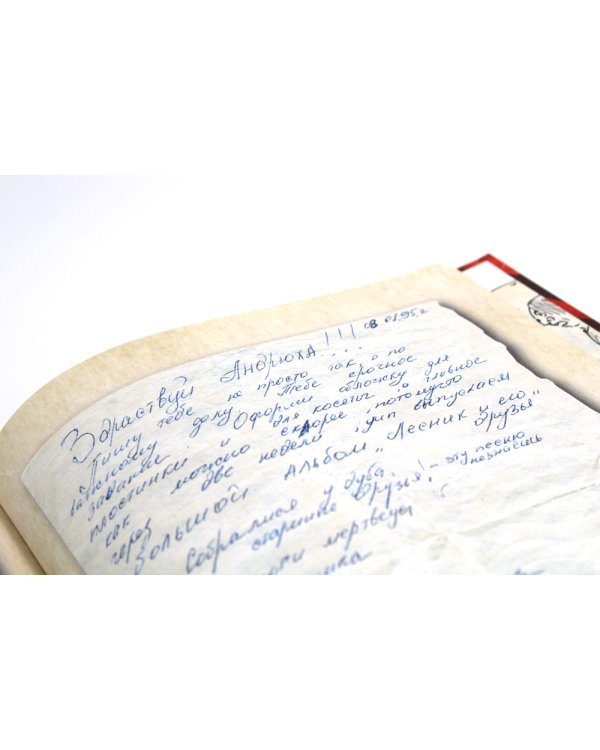 Здраствуй Андрюха!!! 08.01.95.г
Пишу тебе не просто так, а по
важному делу.... Тебе срочное
задание. Оформи обложку для
пластинки и для косеты, а главное
как можно скорее, потомучто
через две недели уже выпускаем
большой альбом „Лесник и его
друзья"
Собрались у дуба,
старинные друзья! - эту песню
не знаешь
мертвецы